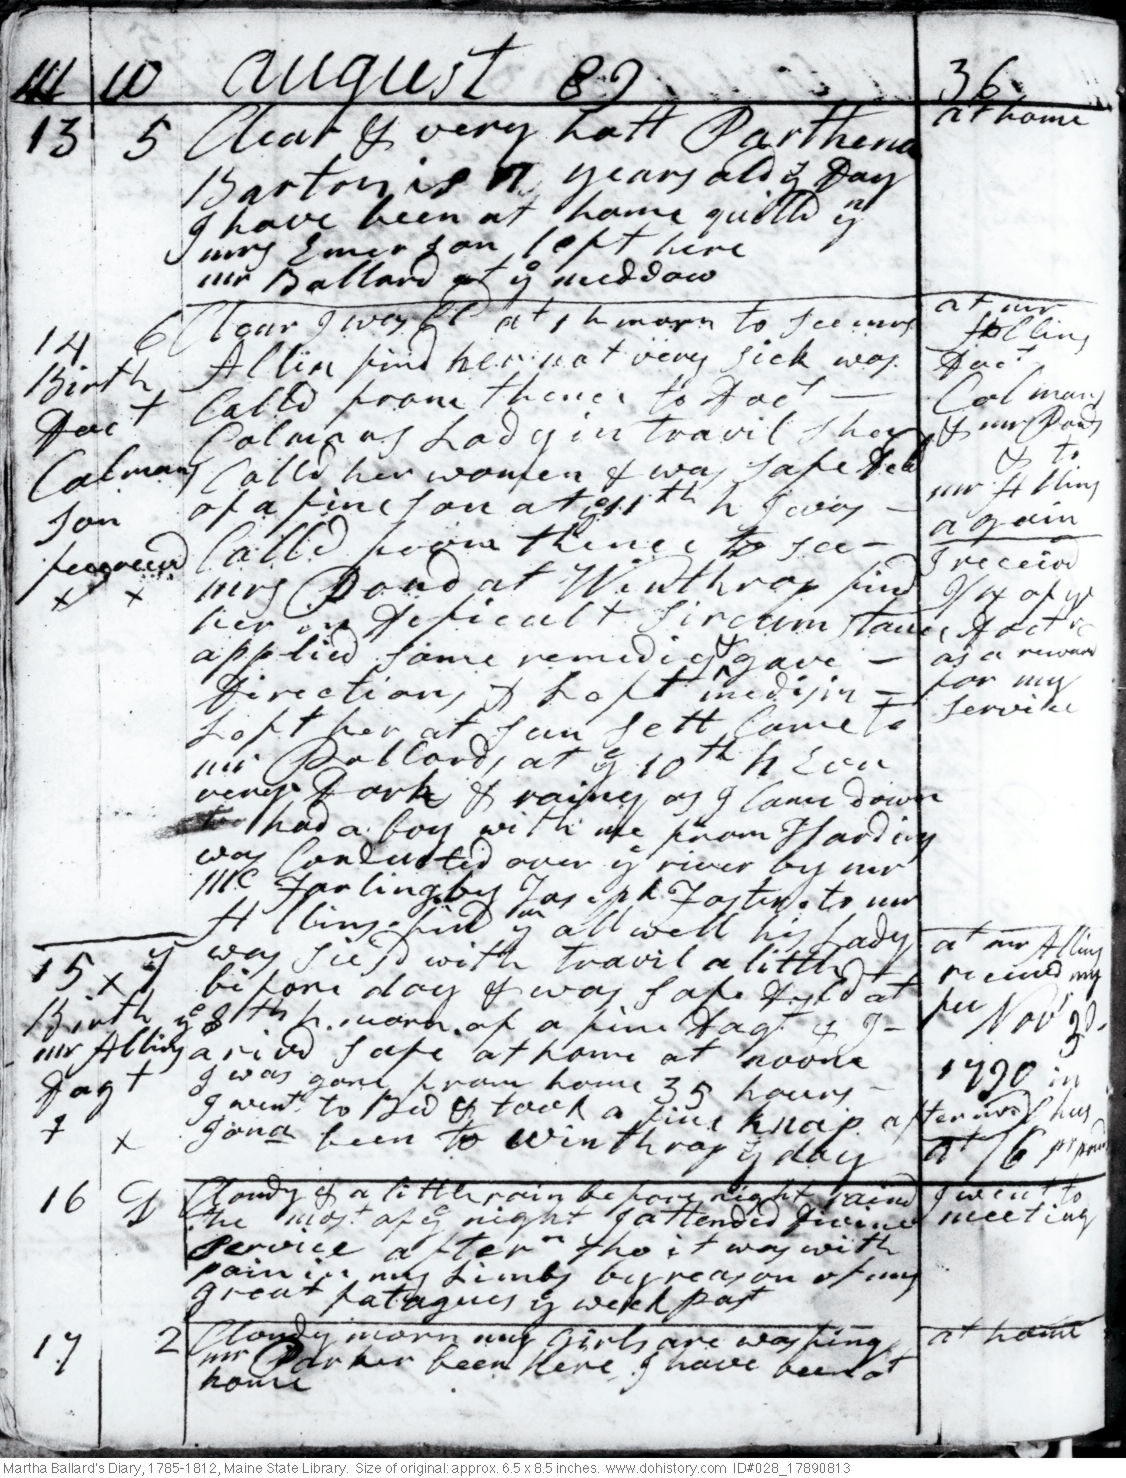 august 89 36
13 5 Clear & very hott Parthena
Barton is 17 years old ye Day
I have been at home quilld yn
mrs Emerson left here
mr Ballard at ye meddow
at home
14 6 Clear I was Calld at 1 h morn to see mrs
Allin find her not very sick was
Calld from thence to Doct
Colmans Lady in travil shee
Calld her women & was safe Deld
of a fine son at ye 11th h I was
Calld from thence to see
mrs Pond at Winthrop find
her in Deficult Sircumstances
applied some remedies & gave
Directions & Left medisin
Left her at sun sett Came to
mr Pollards at ye 10th h Evn
very Dark & rainy as I Came down
had a boy with me from
was Conducted over ye river by mr
Mc Farling by Joseph Foster to mr
Allins find ym all well his Lady
Birth
Doct
Colmans
Son
fee receivd
x x
at mr
Allins
Doct
Colmans
& mrs Ponds
& to
mr Allins
again
I receivd
of ye
Doct
as a reward
for my
Service
15 7 was siesd with travil a little
before day & was safe Deld at
ye 8th h morn of a fine Dagt & I
arived safe at home at noone
I was gone from home 35 hours
I went to Bed & took a fine knap
Jona been to Winthrop ye day
x
Birth
mr Allins
Dagt
x
at mr Allins
receivd my
fee Novr 3d
1790 in
at /6 pr pound
16 Cloudy & a little rain before night raind
the most of ye night I attended divine
service aftern tho it was with
pain in my Limbs by reason of my
great fatagues ye week past
I went to
meeting
17 2 Cloudy morn my Girls are washing
mr Parker been here I have been at
home
at home
Martha Ballard's Diary, 1785-1812, Maine State Library. Size of original: approx. 6.5 x 8.5 inches. www.dohistory.com ID#028_17890813